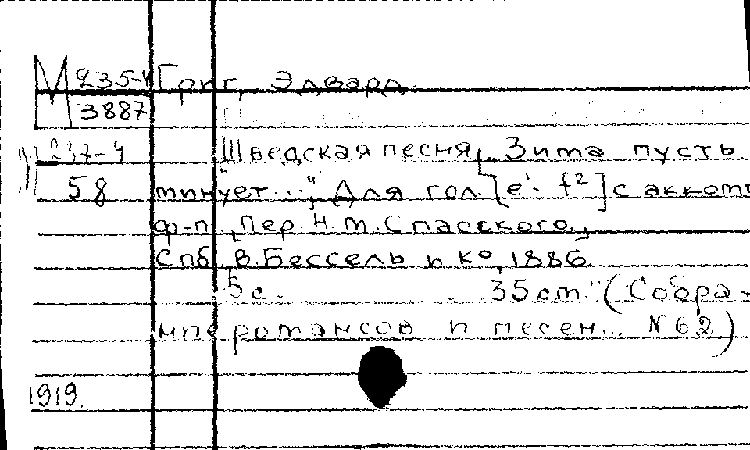 М 235-4 Григ, Эдвард
3887
237-4 Шведская песня "Зима пусть
58 минует..." Для гол. [e¹-f²] с акком
ф-п. Пер. Н.М.Спасского.
Спб, В.Бессель и ко, 1886
5с. 35cm. (Собра-
ние романсов и песен... N 62)
1919.